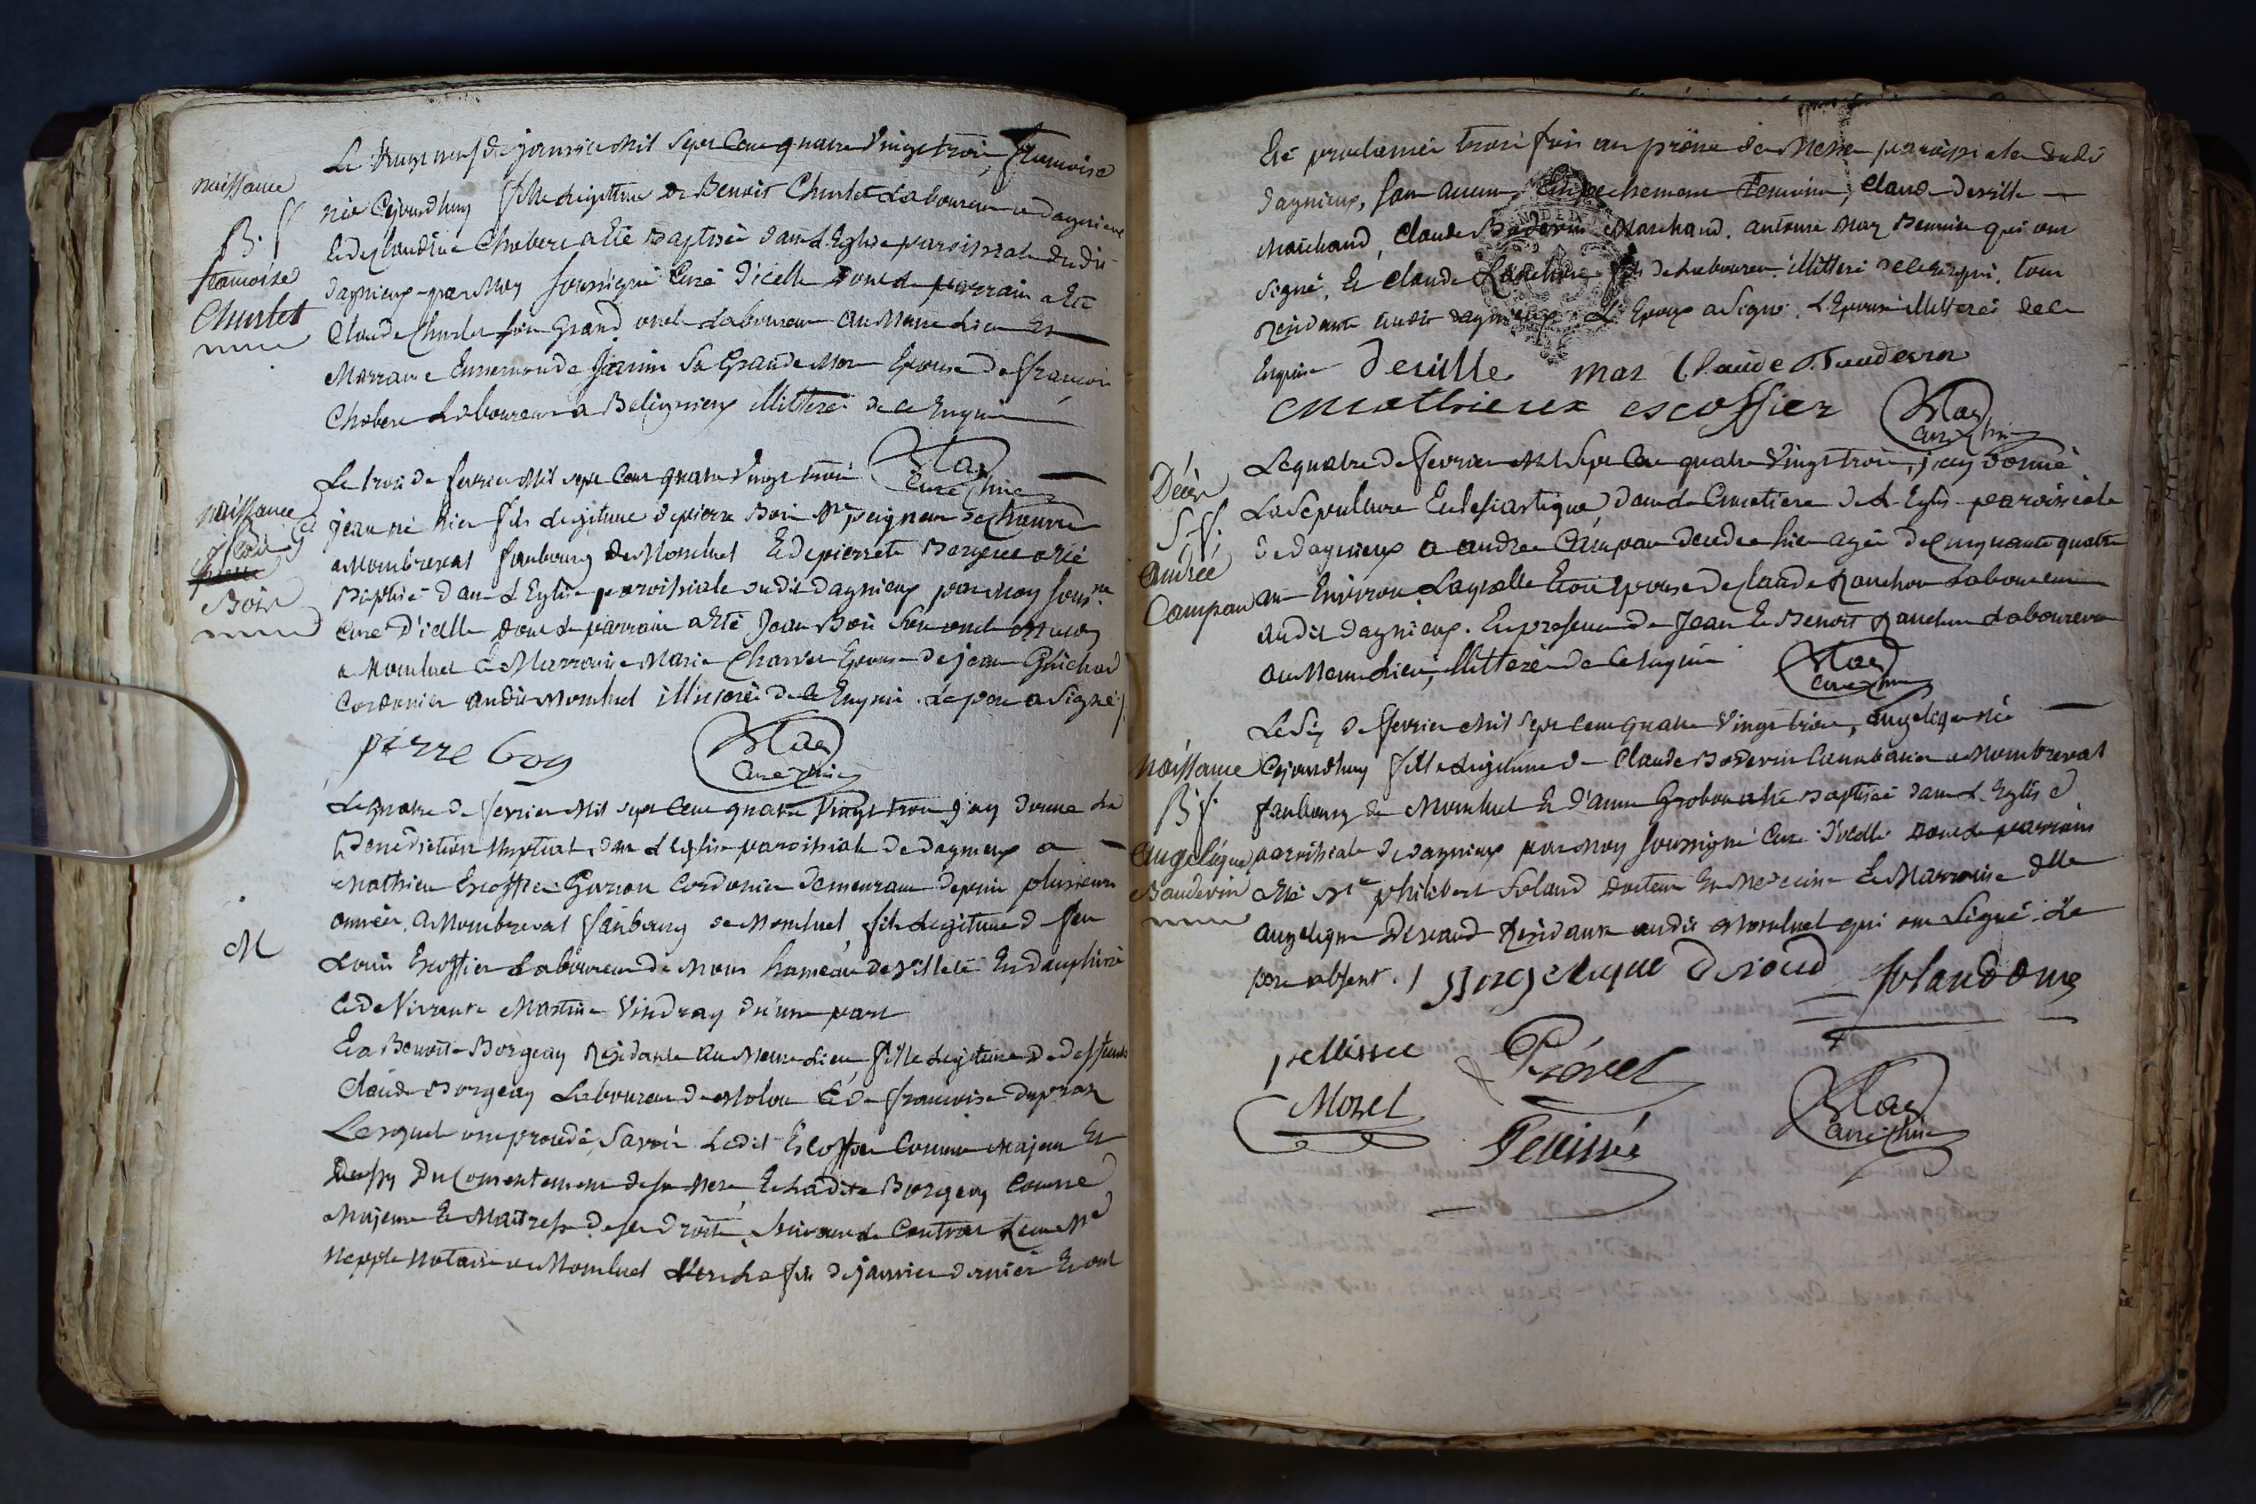 naissance
B. f.
francoise
Churlet
Le vingt neuf de janvier mil sept cent quatre vingt trois, francoise
née cejourdhuy fille legitime de Benoit Churlet Laboureur a dagnieux
Et de Claudine Chabert a Eté Baptisée dans L'Eglise paroissiale du dit
dagnieux par Moy soussigné Curé d'icelle dont le parrain a Eté
Claude Churlet son Grand oncle Laboureur au Meme Lieu Et
Marraine Ennemonde Janin Sa Grande Mere Epouse de françois
Chabert Laboureur a Beligneux illitterés de ce Enquis
Mas
Curé
naissance
Jean
Bois
Le trois de fevrier Mil sept Cent quatre Vingt trois
jean né hier fils legitime de pierre Bois Me peigneur de Chanvre
a Mombreval faubourg de Monluel Et de pierrette Borgeat a été
Baptisé dans L'Eglise paroissiale du dit dagnieux par moy souss.né
Curé D'icelle dont le parrain a Eté Jean Bois Son oncle
a Monluel Et Marraine Marie Charvet Epouse de jean Guichard
Cordonnier audit Monluel illitterés de ce Enquis. Le pere a Signé /.
pierre boy
Mas
Curé
M
Le quatre de fevrier Mil sept Cent quatre Vingt trois j'ay donné La
Benediction Nuptiale dans L'eglise paroissiale de Dagnieux a
Mathieu Escoffier Garçon Cordonier demeurant depuis plusieurs
années a Mombreval faubourg de Monluel, fils Legitime de feu
Louis Escoffier Laboureur de Mons hameau de Villette En dauphiné
Et de Vivante Martine Vindray d'une part
Et a Benoite Borgeay Residante au Meme Lieu, fille Legitime de deffunt
Claude Borgeay Laboureur de Molon Et de francoise Dupraz
Lesquels ont procédé, Savoir Ledit Escoffier Comme Majeur Et
Du Consentement de sa Mere, Et Ladite Borgeay Comme
Majeure Et Maitresse de ses droits, Suivant Le Contrat Recu Me
Nepple Notaire a Monluel Vers La fin de janvier dernier Et ont
Eté proclamés trois fois au prône de Messe paroissiale du dit
dagnieux, sans aucun Empechement Temoins, Claude deville
Marchand, Claude Bodevin Marchand, antoine Mas qui ont
Signé, Et Claude fils de Laboureur illitteré de ce Enquis, tous
Residants audit dagnieux L'Epoux a Signé. L'Epouse illitterée de ce
Enquise deville mas Claude Baudevin
mathieux escoffier
Mas
Curé
Décès
S. f.
Andrée
Campan
Le quatre de fevrier Mil Sept Cent quatre Vingt trois, j'ay donné
La Sepulture Eclesiastique dans le Cimetiere de L'Eglise paroissiale
de dagnieux a andrée Campan decedée hier agée de Cinquante quatre
ans Environ. Laquelle Etoit Epouse de Claude Ranchon Laboureur
audit Dagnieux. En presence de Jean Et Benoit Ranchon Laboureurs
au Meme Lieu, illitterés de ce Enquis
Mas
Curé
naissance
B. f.
Angelique
Baudevin
Le Six de fevrier Mil Sept Cent quatre Vingt trois, angelique née
Cejourdhuy fille Legitime de Claude Bodevin Cabaretier a Mombreval
faubourg de Monluel Et d'anne Grobon a Eté Baptisée dans L'Eglise
paroissiale de dagnieux par Moy soussigné Curé D'icelle dont le parrain
a Eté Mre philibert Foland Docteur En Medecine Et Marraine dlle
angelique Deriaud Residants audit Monluel qui ont Signé. Le
pere absent. / angelique deriaud folandDme
pellissee Prévet
Morel
Pellissée
Mas
Curé